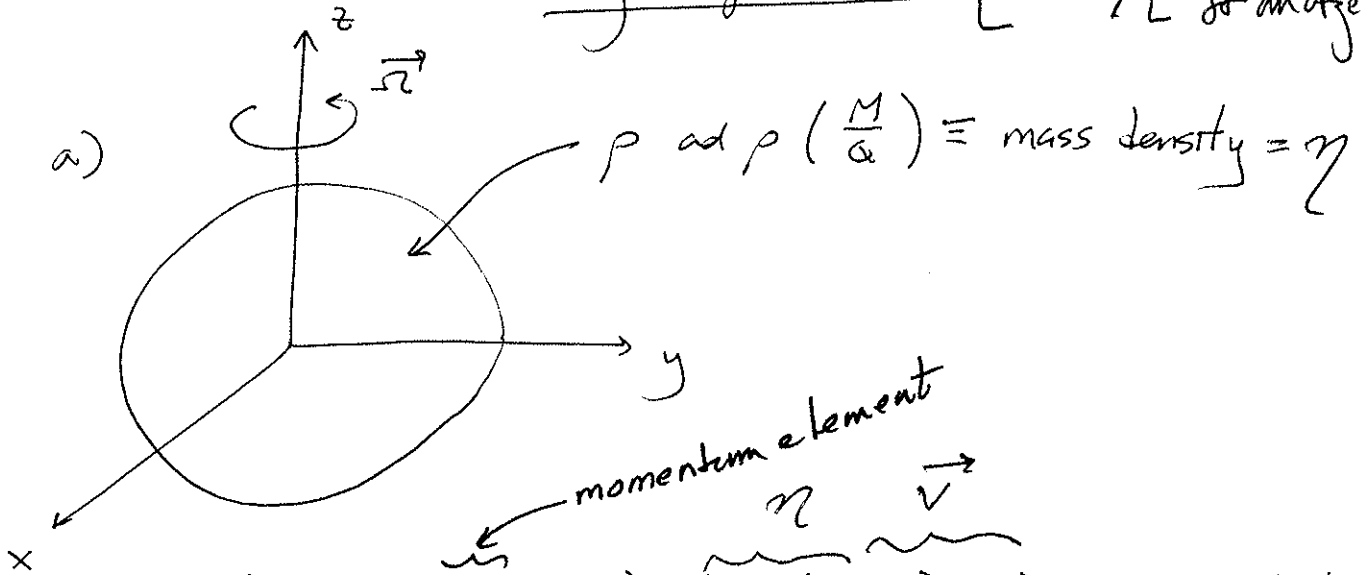 z
L
Ω⃗
a)
ρ ad ρ (M/Q) ≡ mass density = η
y
momentum element
η v⃗
x